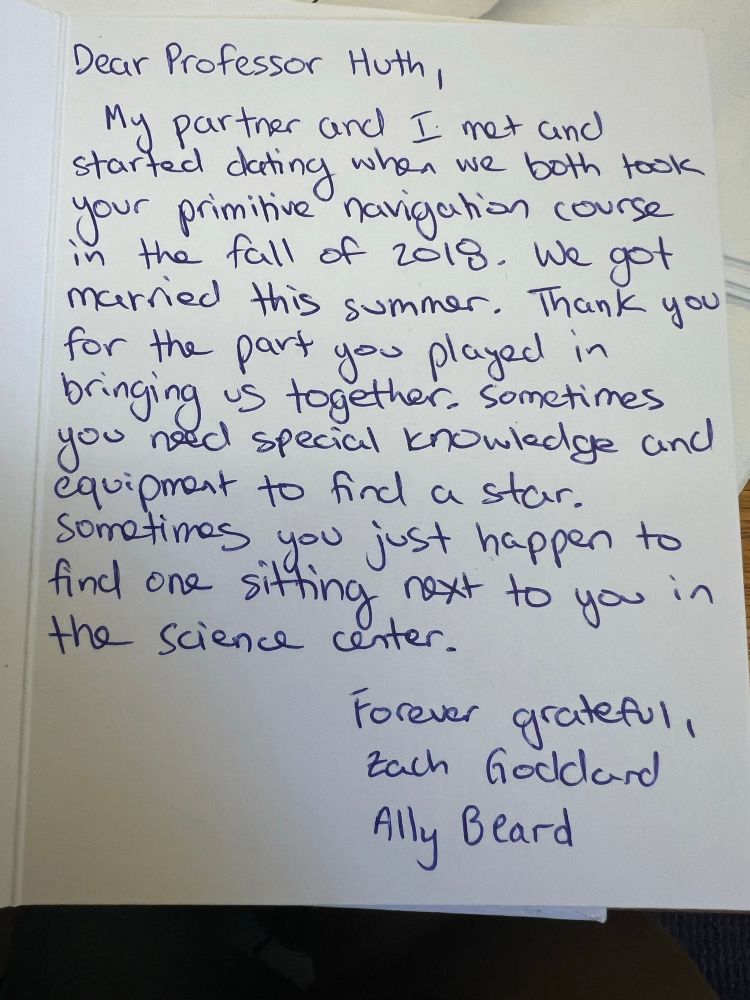 Dear Professor Huth,
My partner and I met and
started dating when we both took
your primitive navigation course
in the fall of 2018. We got
married this summer. Thank you
for the part you played in
bringing us together. Sometimes
you need special knowledge and
equipment to find a star.
Sometimes you just happen to
find one sitting next to you in
the science center.
Forever grateful,
Zach Goddard
Ally Beard